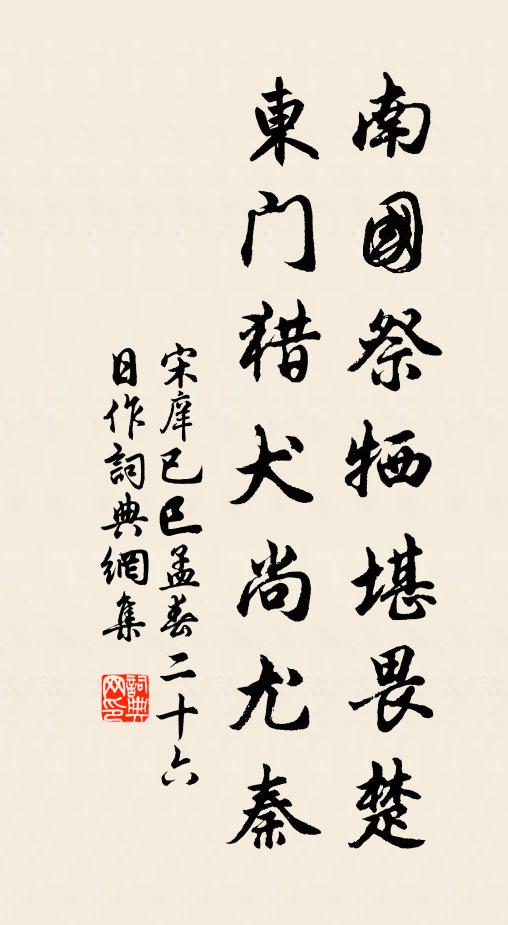 南國祭牺堪畏楚
東门猎犬尚尤秦
宋庠己巳孟春二十六
日作詞典網集
詞典网印